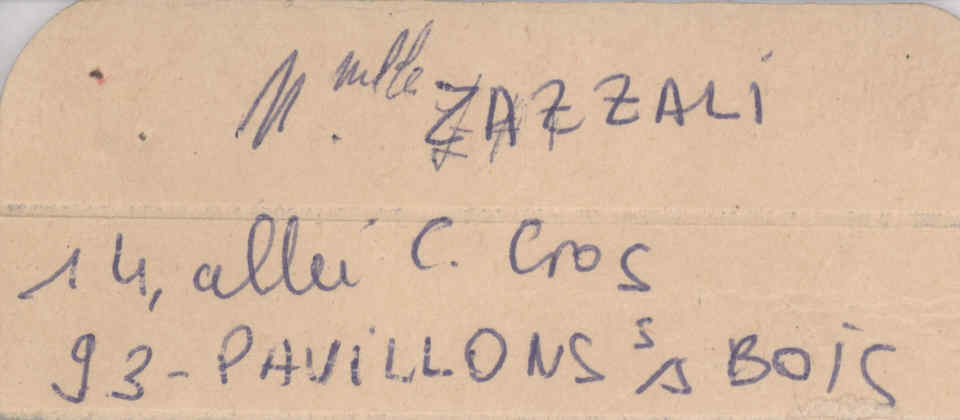 M.elle ZAZZALI
14, allée C. Cros
93 - PAVILLONS s/s BOIS